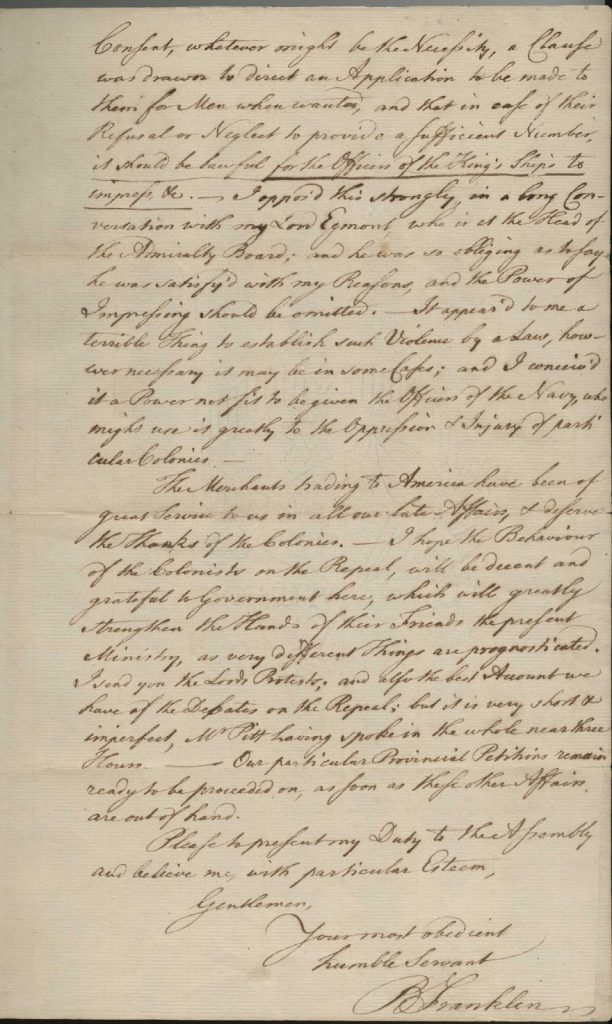 Consent, whatever might be the Necessity, a Clause
was drawn to direct an Application to be made to
them for Men when wanted, and that in case of their
Refusal or Neglect to provide a sufficient Number,
it should be lawful for the Officers of the King's Ships to
impress &c. — I oppos'd this strongly, in a long Con-
versation with my Lord Egmont who is at the Head of
the Admiralty Board; and he was so obliging as to say,
he was satisfy'd with my Reasons, and the Power of
Impressing should be omitted. — It appear'd to me a
terrible Thing to establish such Violence by a Law, how-
ever necessary it may be in some Cases; and I conceiv'd
it a Power not fit to be given the Officers of the Navy, who
might use it greatly to the Oppression & Injury of parti
cular Colonies —
The Merchants trading to America have been of
great Service to us in all our late Affairs, & deserve
the Thanks of the Colonies. — I hope the Behaviour
of the Colonists on the Repeal, will be decent and
grateful to Government here, which will greatly
strengthen the Hands of their Friends the present
Ministry, as very different Things are prognosticated.
I send you the Lords Protests; and also the best Account we
have of the Debates on the Repeal; but it is very short &
imperfect, Mr Pitt having spoke in the whole near three
Hours. — Our particular Provincial Petitions remain
ready to be proceeded on, as soon as these other Affairs
are out of hand.
Please to present my Duty to the Assembly
and believe me, with particular Esteem,
Gentlemen,
Your most obedient
humble Servant
B Franklin